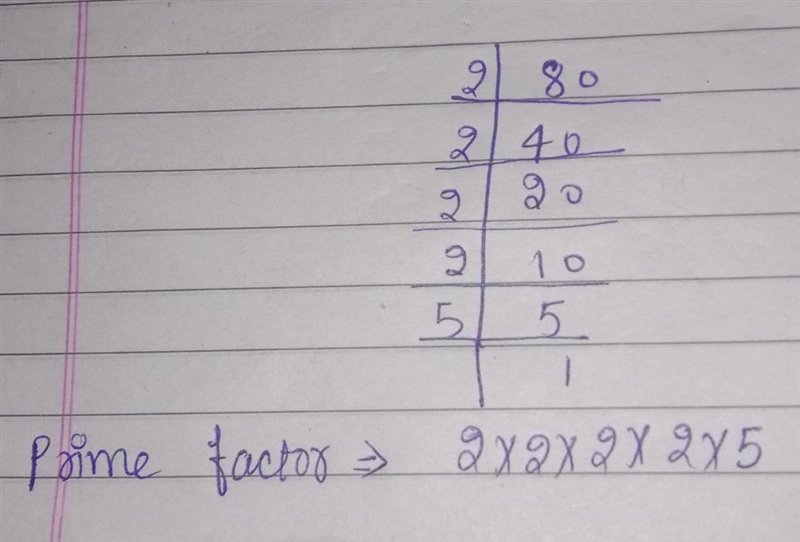 2 | 80
2 | 40
2 | 20
2 | 10
5 | 5
| 1
Prime factor ⇒ 2×2×2×2×5